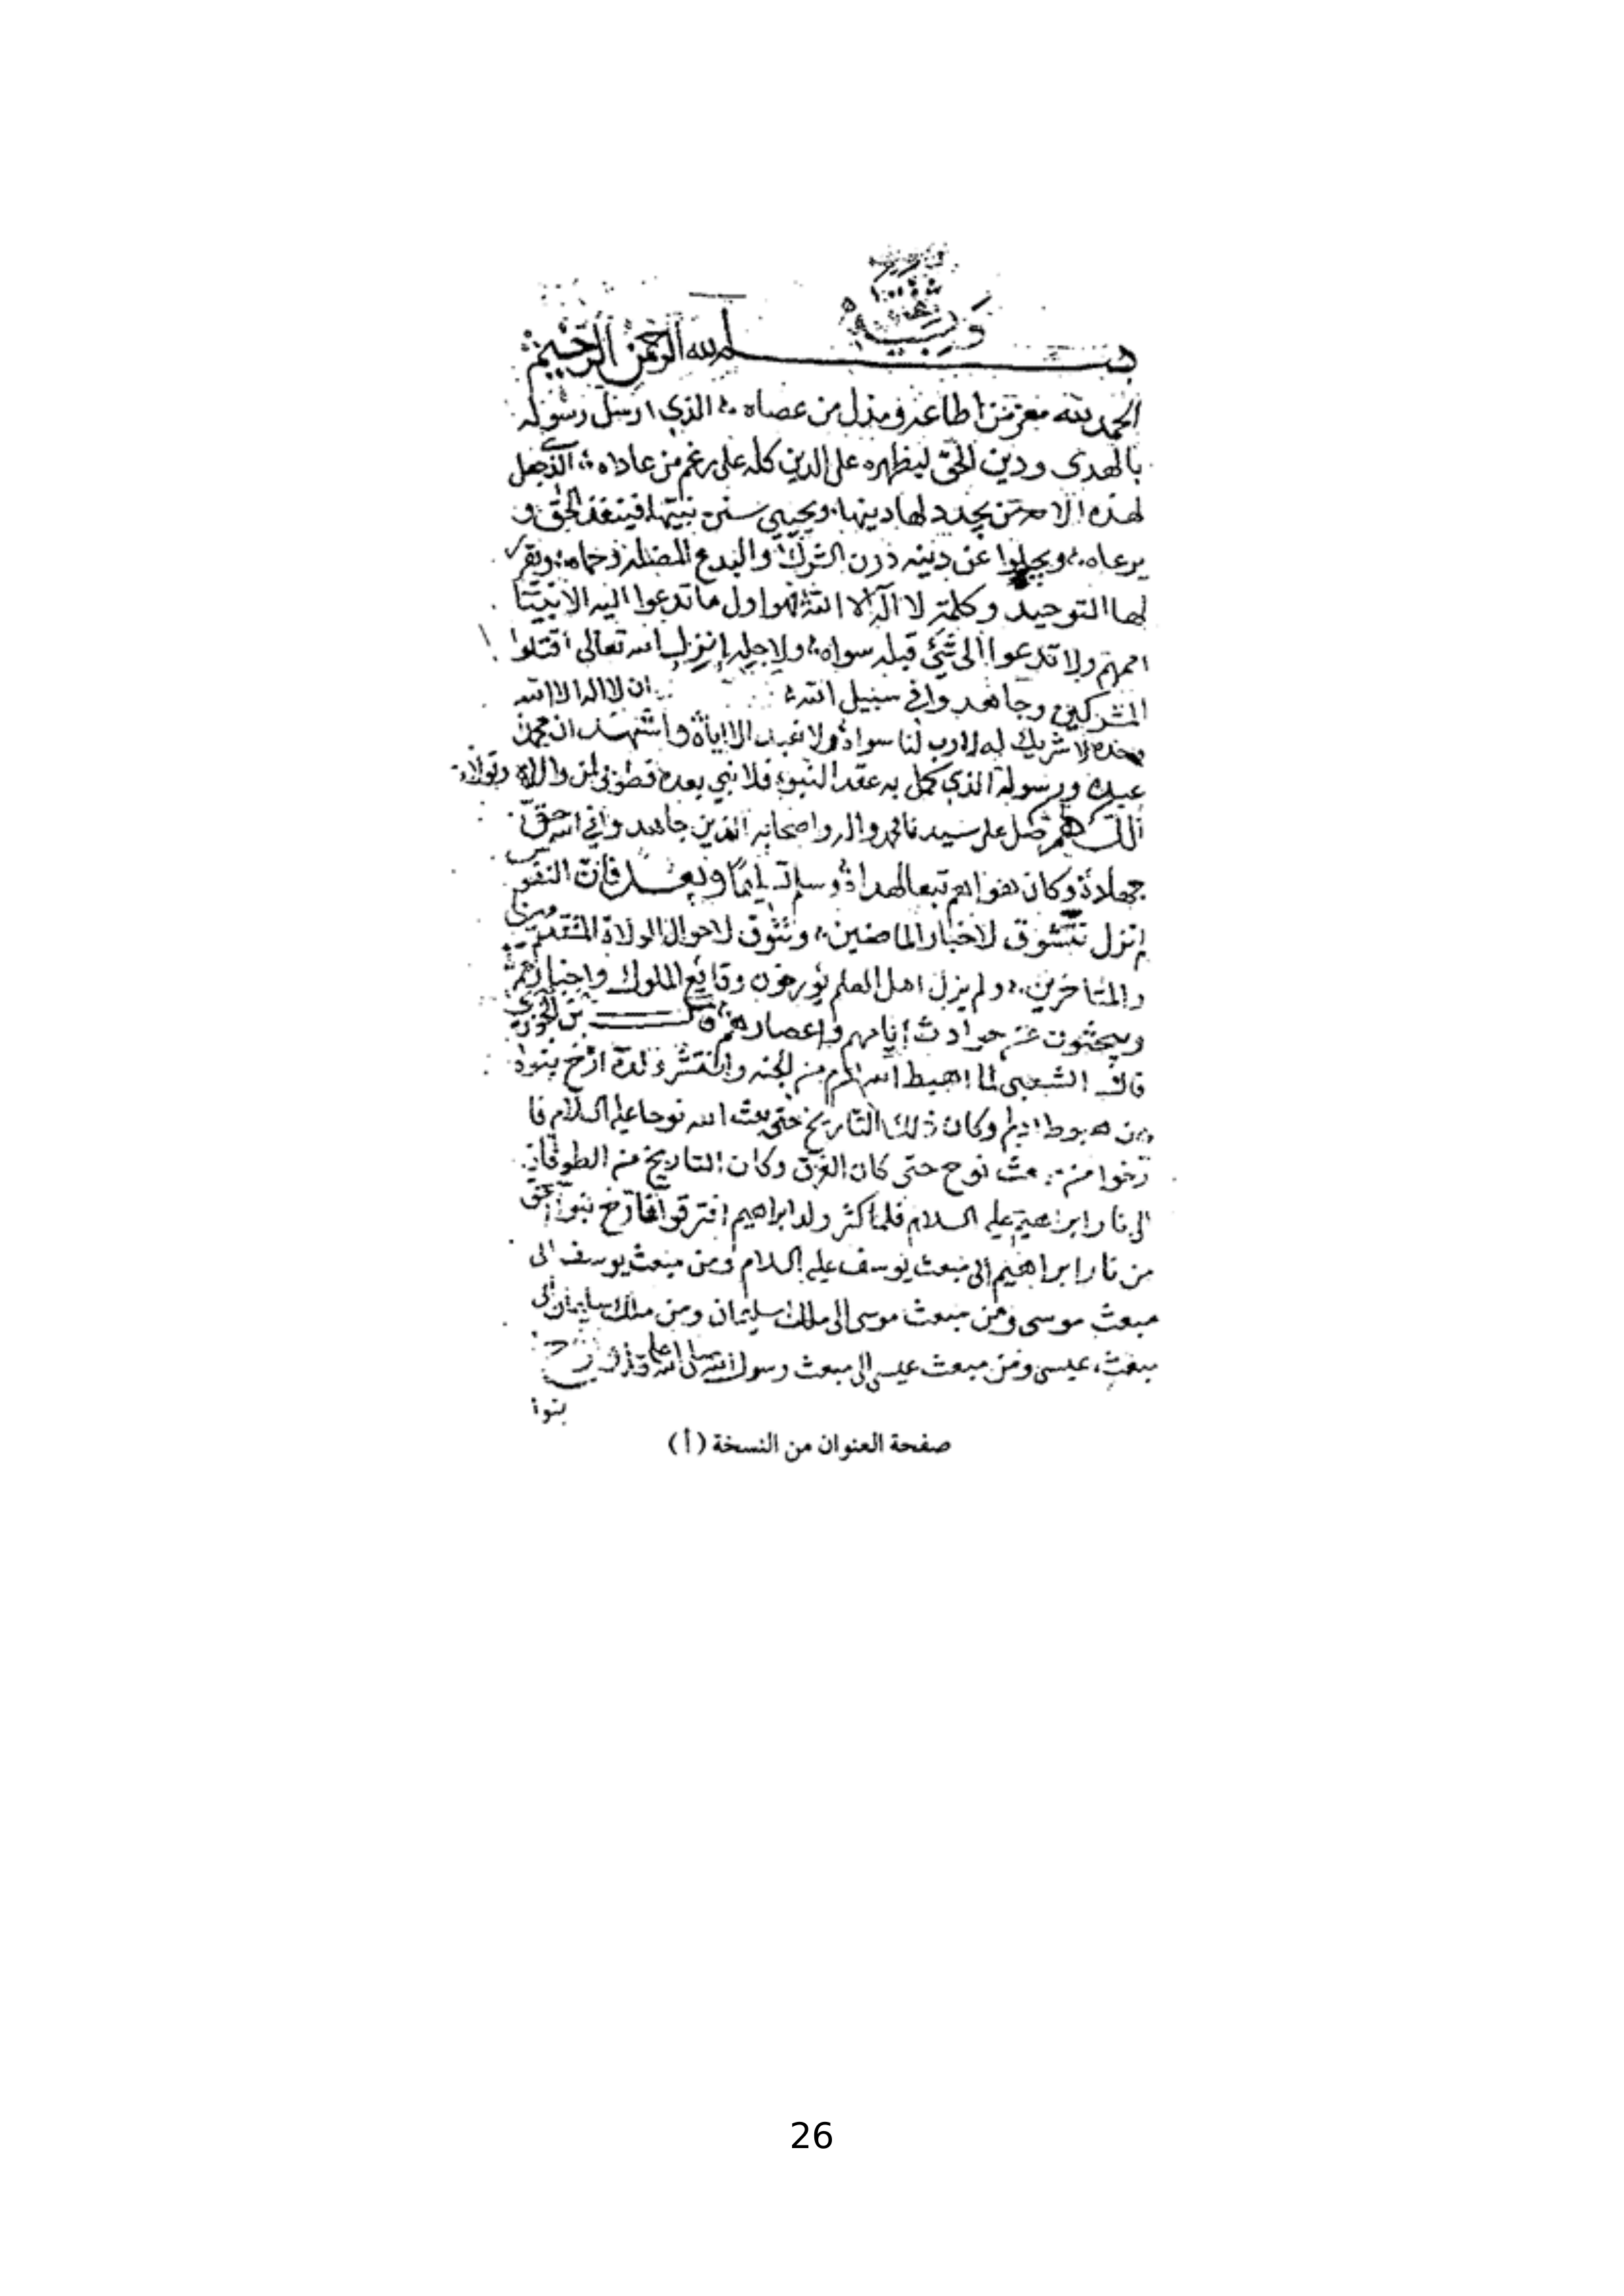 بسم الله الرحمن الرحيم
الحمد لله معز من اطاعه ومذل من عصاه الذي ارسل رسوله
بالهدى ودين الحق ليظهره على الدين كله على رغم من عاداه الذي جعل
لهذه الامة من يجدد لها دينها ويحيي سنن نبيها فينفذ الحق و
يرعاه ويجلوا عن دينه درن الشرك والبدع المضلة وحماه ويقر
لها التوحيد وكلمة لا اله الا الله اول ما تدعوا اليه الانبيا
اممهم ولا تدعوا الى شيء قبله سواه ولاجله تعالى اقتلوا
المشركين وجاهدوا في سبيل الله ان لا اله الا الله
وحده لا شريك له لا رب لنا سواه ولا نعبد الا اياه واشهد ان محمدا
عبده ورسوله الذي كمل به عقد النبوة فلا نبي بعده فطوبى لمن والاه وتولاه
اللهم صل على سيدنا محمد واله واصحابه الذين جاهدوا في الله حق
جهاده وكان هواهم تبعا لهداه وسلم تسليما وبعد فان النفوس
لم تزل تتشوق لاخبار الماضين وتتوق لاحوال الولاة المتقدمين
والمتاخرين ولم يزل اهل العلم يؤرخون وقايع الملوك واخبارهم
ويبحثون عن حوادث ايامهم واعصارهم قال بن الجوزي
قال الشعبي لما اهبط الله ادم من الجنه وانتشر ولده ارخ بنوه
من هبوط ادم وكان ذلك التاريخ حتى بعث الله نوحا عليه السلام فا
رخوا من مبعث نوح حتى كان الغرق وكان التاريخ من الطوفان
الى نار ابراهيم عليه السلام فلما كثر ولد ابراهيم افترقوا فارخ بنوا اسحق
من نار ابراهيم الى مبعث يوسف عليه السلام ومن مبعث يوسف الى
مبعث موسى ومن مبعث موسى الى ملك سليمان ومن ملك سليمان الى
مبعث عيسى ومن مبعث عيسى الى مبعث رسول الله صلى الله عليه وارخ
بنوا
صفحة العنوان من النسخة (أ)
26